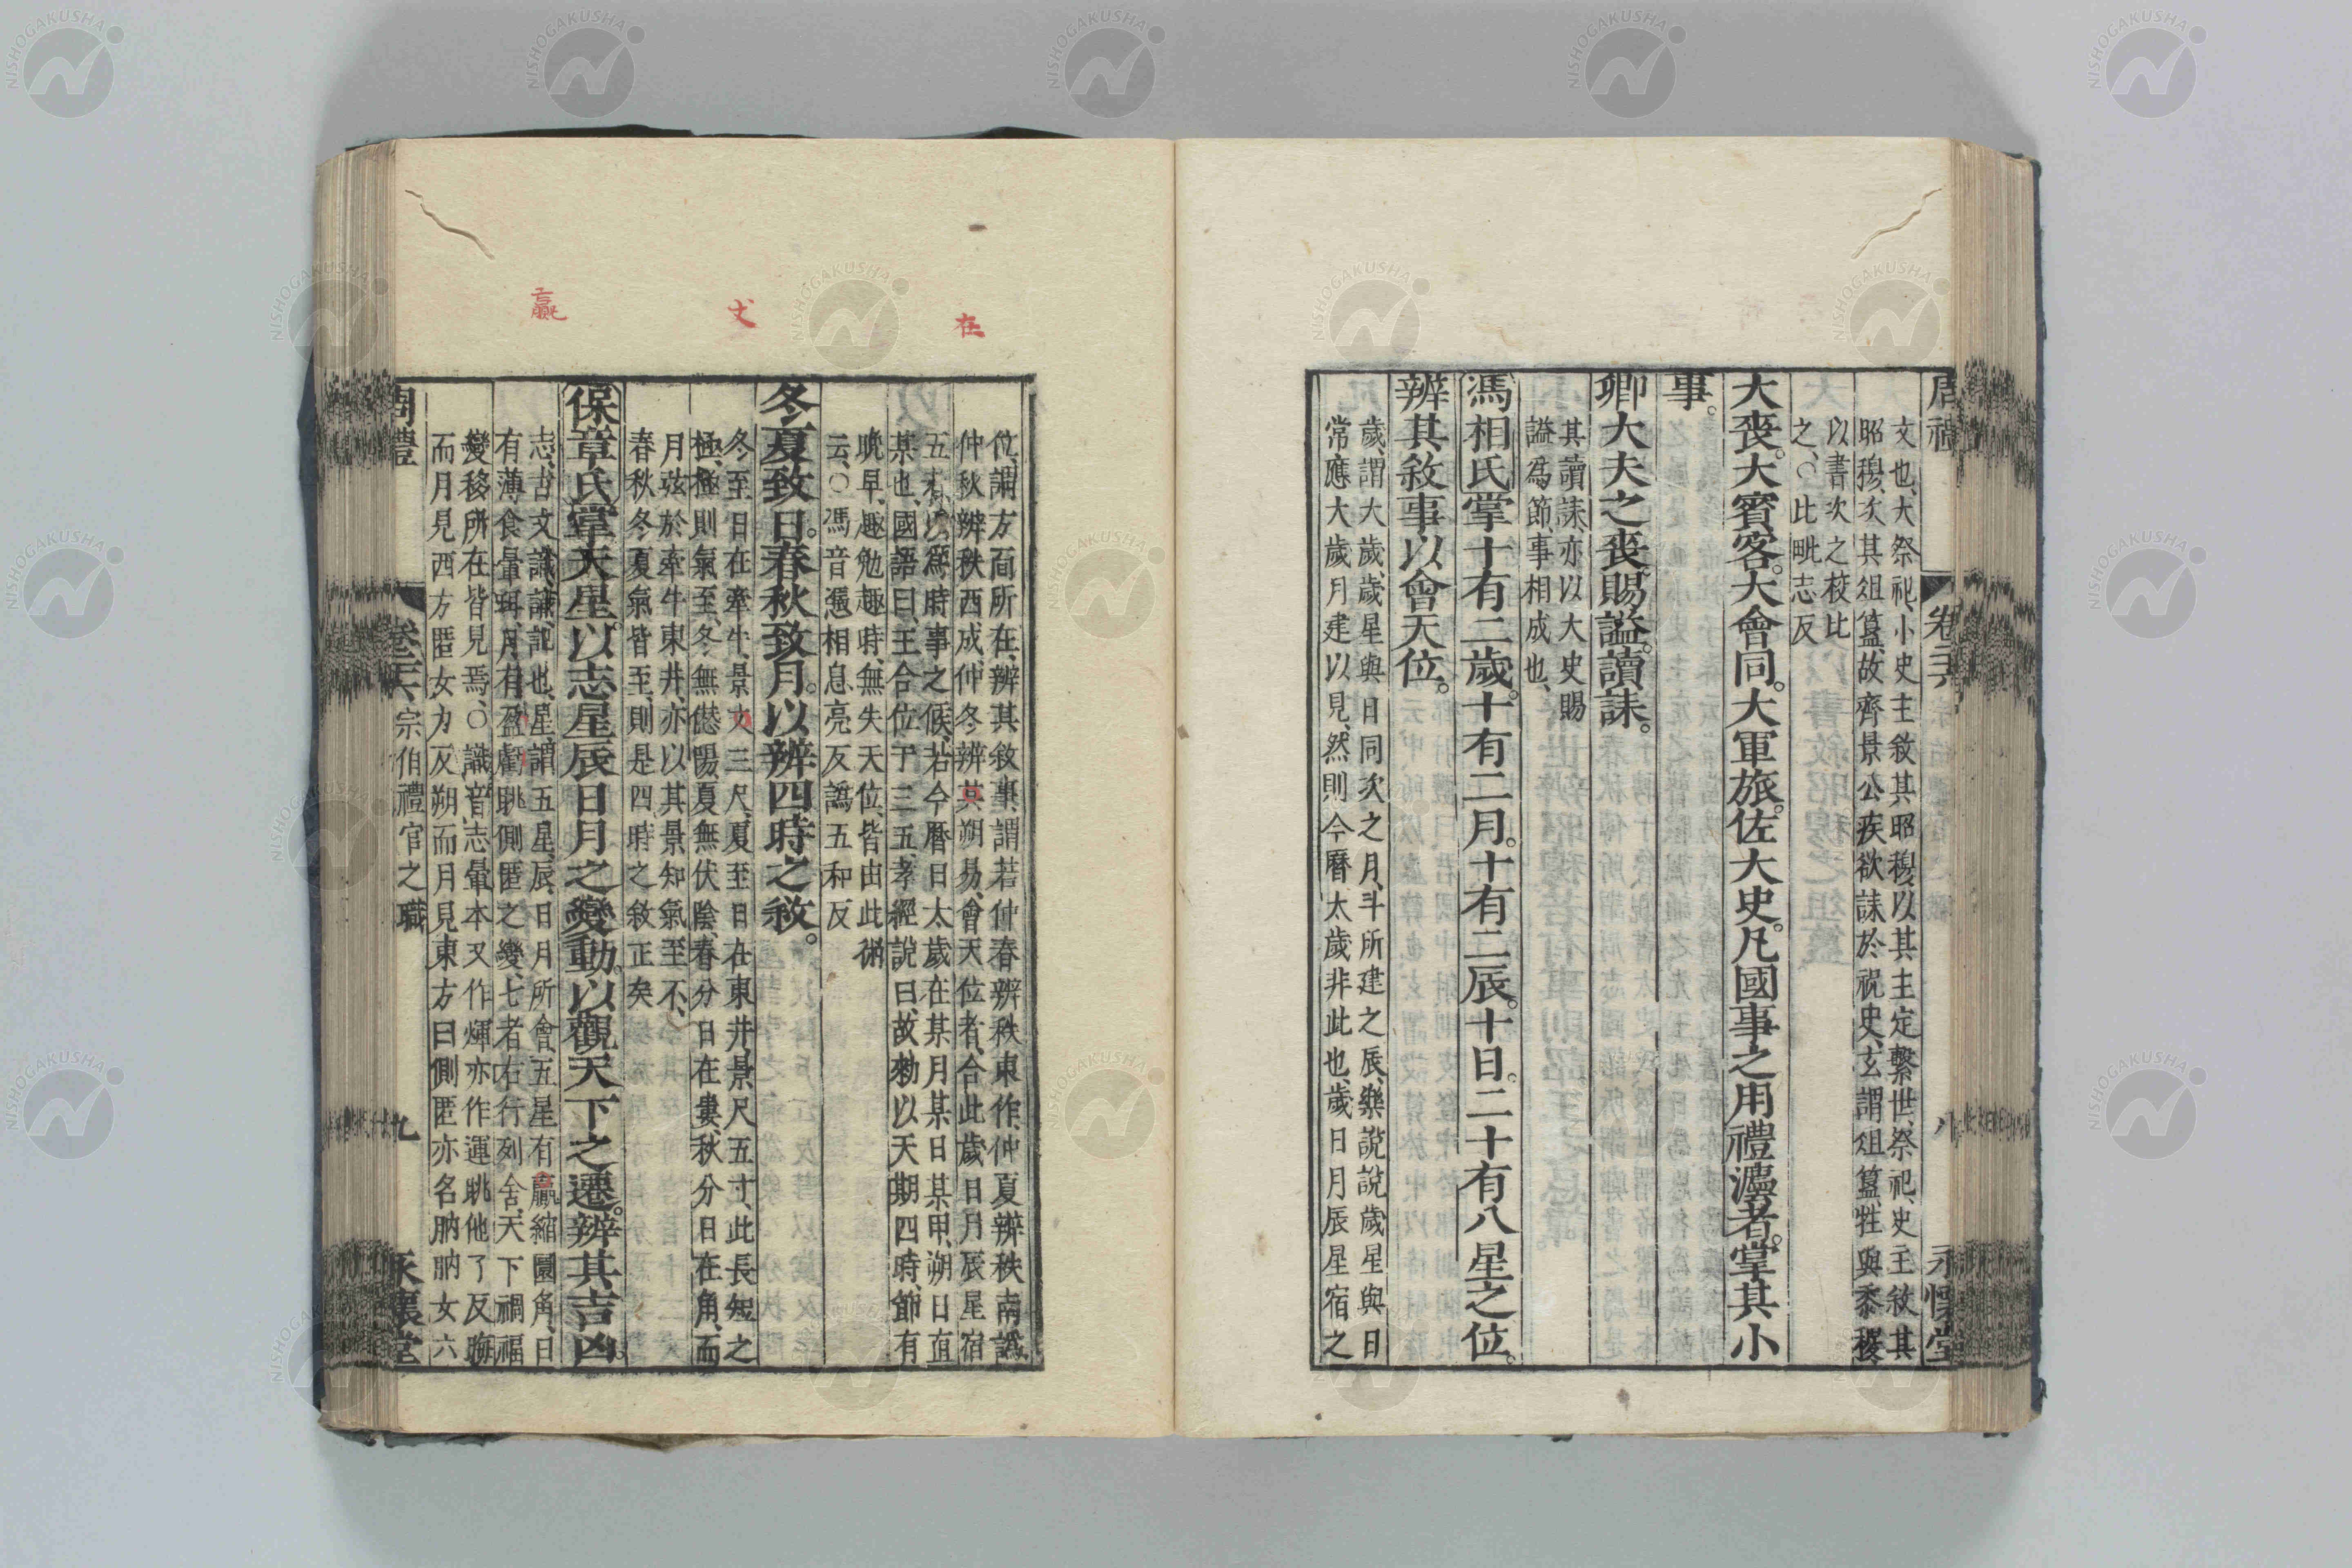 周禮 卷二六 八 永懷堂
文也、大祭祀、小史主敘其昭穆、以其主定繫世、祭祀、史主敘其
昭穆、次其俎簋、故齊景公疾、欲誅於祝史、玄謂俎簋、牲與黍稷、
以書次之、校比
之、○此毗志反
大喪。大賓客。大會同。大軍旅。佐大史。凡國事之用禮灋者。掌其小
事。
卿大夫之喪。賜謚。讀誄。
其讀誄、亦以大史賜
謚爲節、事相成也、
馮相氏掌十有二歲。十有二月。十有二辰。十日。二十有八星之位。
辨其敘事。以會天位。
歲、謂大歲、歲星與日同次之月、斗所建之辰、樂說說歲星與日
常應大歲月建以見、然則今曆太歲非此也、歲日月辰星宿之
位、謂方面所在、辨其敘事、謂若仲春辨秩東作、仲夏辨秩南譌、
仲秋辨秩西成、仲冬辨其朔易、會天位者、合此歲日月辰星宿
五者、以爲時事之候、若今曆日太歲在某月某日某甲、朔日直
某也、國語曰、王合位于三五、孝經說曰、故勑以天期四時、節有
晚早、趣勉趣時、無失天位、皆由此術
云、○馮音憑相息亮反譌五和反
冬夏致日。春秋致月。以辨四時之敘。
冬至日在牽牛、景丈三尺、夏至日在東井、景尺五寸、此長短之
極、極則氣至、冬無愆陽、夏無伏陰、春分日在婁、秋分日在角、而
月弦於牽牛東井、亦以其景知氣至不、
春秋冬夏氣皆至、則是四時之敘正矣
保章氏掌天星。以志星辰日月之變動。以觀天下之遷。辨其吉凶。
志、古文識、識、記也、星、謂五星、辰、日月所會、五星有贏縮圜角、日
有薄食暈珥、月有盈虧朓側匿之變、七者右行列舍、天下禍福
變移所在皆見焉、○識音志暈本又作煇亦作運朓他了反晦
而月見西方匿女力反朔而月見東方曰側匿亦名朒朒女六
周禮 卷二六、宗伯禮官之職 九 永懷堂
在
丈
贏